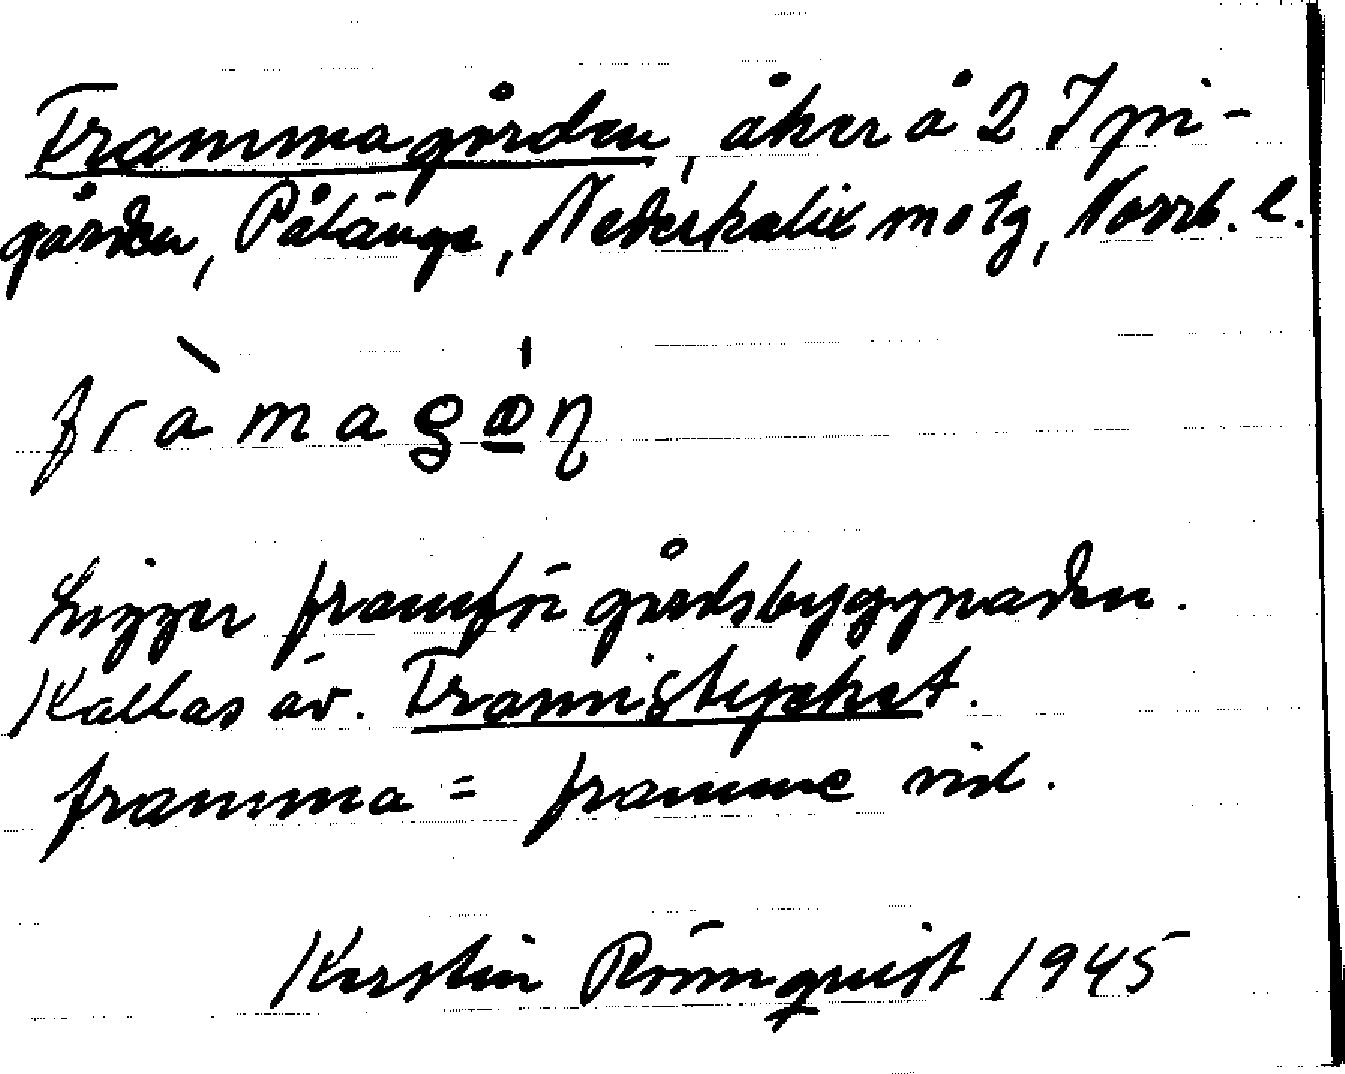 Frammagården, åker å 2 Ipi-
gården, Pålänge, Nederkalix motg, Norrb. l.
fràmagǫ́n
Ligger framför gårdsbyggnaden.
Kallas äv. Framistycket.
framma = framme vid.
Kerstin Rönnquist 1945